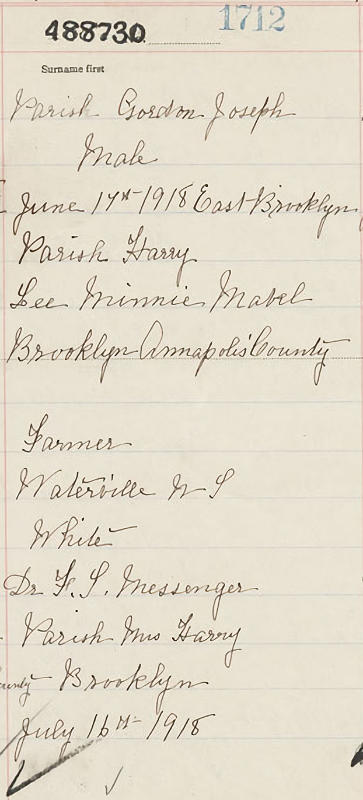 488730 1712
Surname first
Parish Gordon Joseph
Male
June 17th 1918 East Brooklyn
Parish Harry
Lee Minnie Mabel
Brooklyn Annapolis County
Farmer
Waterville N S
White
Dr F. S. Messenger
Parish Mrs Harry
Brooklyn
July 16th 1918